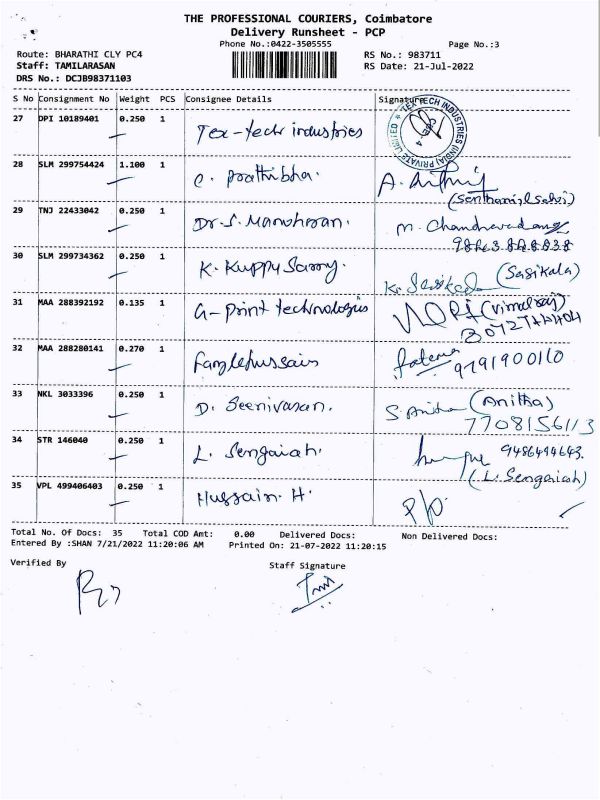 THE PROFESSIONAL COURIERS, Coimbatore
Delivery Runsheet - PCP
Phone No.:0422-3505555
Page No.:3
Route: BHARATHI CLY PC4
RS No.: 983711
Staff: TAMILARASAN
RS Date: 21-Jul-2022
DRS No.: DCJB98371103
S No Consignment No Weight PCS Consignee Details Signature
TEX TECH INDUSTRIES (INDIA) PRIVATE LIMITED
27 DPI 10189401 0.250 1 Tex-tech industries
28 SLM 299754424 1.100 1 C. Prathibha.
(Senthamil Selvi)
29 TNJ 22433042 0.250 1 Dr. S. Manohran. M. Chandravadana
30 SLM 299734362 0.250 1 K. Kuppy Samy. (Sasikala)
31 MAA 288392192 0.135 1 G-Print technologies (Vimalraj)
32 MAA 288280141 0.270 1 Fazlehussain fatema
9791900110
33 NKL 3033396 0.250 1 D. Seenivasan. S. Anitha (Anitha)
7708156113
34 STR 146040 0.250 1 L. Sengaiah. 9486494643.
(L. Sengaiah)
35 VPL 499406403 0.250 1 Hussain. H. P/P.
Total No. Of Docs: 35 Total COD Amt: 0.00 Delivered Docs: Non Delivered Docs:
Entered By :SHAN 7/21/2022 11:20:06 AM Printed On: 21-07-2022 11:20:15
Verified By
Staff Signature